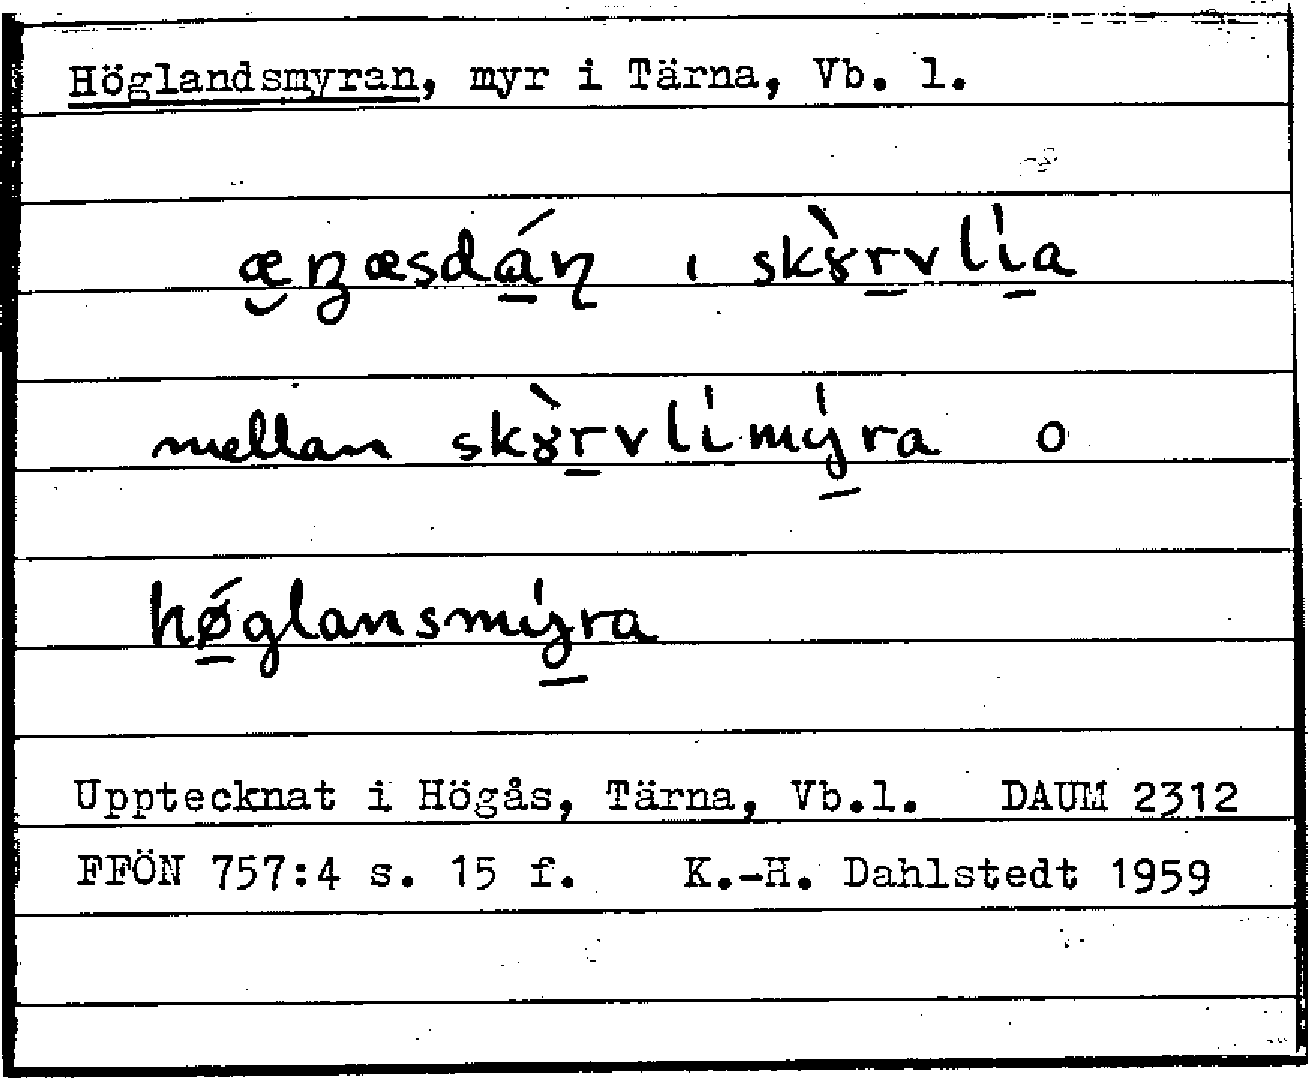 Höglandsmyran, myr i Tärna, Vb. l.
ı skɣ̀rvlı̍a
mellan skɣ̀rvlı̍my̍ra o
hǿglansmy̍ra
Upptecknat i Högås, Tärna, Vb.l. DAUM 2312
FFÖN 757:4 s. 15 f. K.-H. Dahlstedt 1959